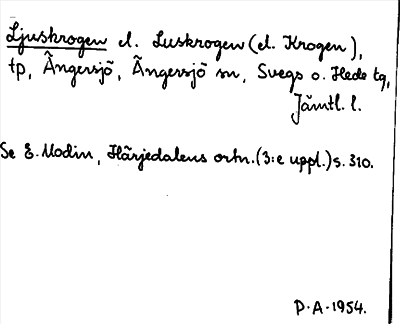 Ljuskrogen el. Luskrogen (el. Krogen),
tp, Ängersjö, Ängersjö sn, Svegs o. Hede tg,
Jämtl. l.
Se E. Modin, Härjedalens ortn. (3:e uppl.) s. 310.
P.A. 1954.